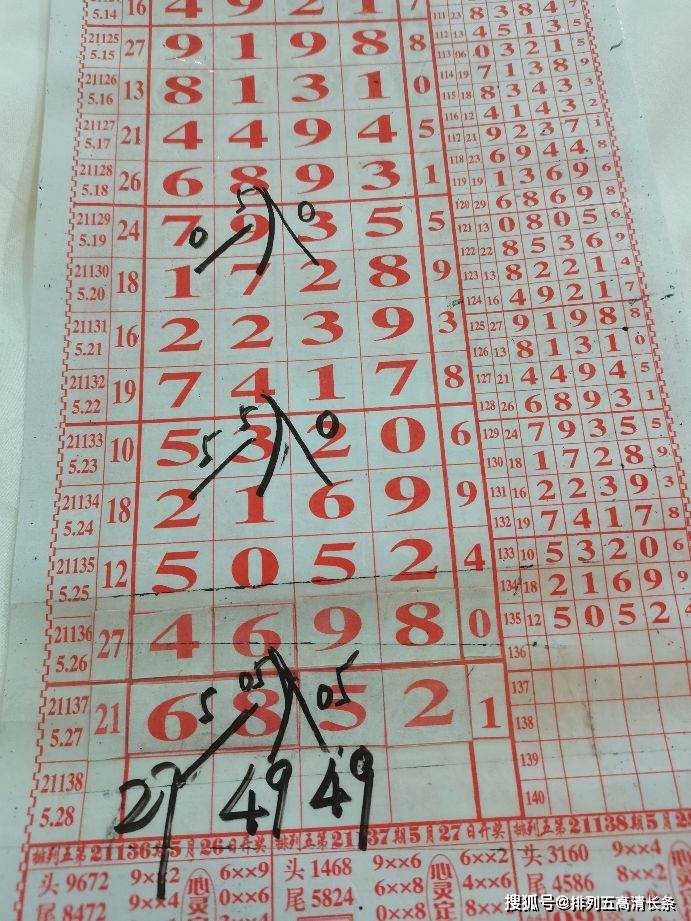 5.14 16 4 9 2 1 7
21125 5.15 27 9 1 9 8 8
21126 5.16 13 8 1 3 1 0
21127 5.17 21 4 4 9 4 5
21128 5.18 26 6 8 9 3 1
5 0
21129 5.19 24 7 9 3 5 5
0
21130 5.20 18 1 7 2 8 9
21131 5.21 16 2 2 3 9 3
21132 5.22 19 7 4 1 7 8
5 0
21133 5.23 10 5 3 2 0 6
5
21134 5.24 18 2 1 6 9 9
21135 5.25 12 5 0 5 2 4
21136 5.26 27 4 6 9 8 0
05 05
21137 5.27 21 6 8 5 2 1
5
21138 5.28
27 49 49
111 23 8 3 8 4 7
112 13 4 5 1 3 5
113 06 0 3 2 1 5
114 19 7 1 3 8 9
115 18 8 3 4 3 3
116 12 4 1 4 3 2
117 21 9 2 3 7 1
118 23 6 9 4 4 8
119 19 1 3 6 9 6
120 29 6 8 6 9 8
121 13 0 8 0 5 6
122 22 8 5 3 6 9
123 13 8 2 2 1 4
124 16 4 9 2 1 7
125 27 9 1 9 8 8
126 13 8 1 3 1 0
127 21 4 4 9 4 5
128 26 6 8 9 3 1
129 24 7 9 3 5 5
130 18 1 7 2 8 9
131 16 2 2 3 9 3
132 19 7 4 1 7 8
133 10 5 3 2 0 6
134 18 2 1 6 9 9
135 12 5 0 5 2 4
136
137
138
139
140
排列五第21136期5月26日开奖
头 9672 9×× 2 6××9
尾 8472 9××4 0××6
心灵
排列五第21137期5月27日开奖
头 1468 9××6 6××2
尾 5824 6××8 4××6
心灵
排列五第21138期5月28
头 3160 9××4
尾 4586 8××2
搜狐号@排列五高清长条